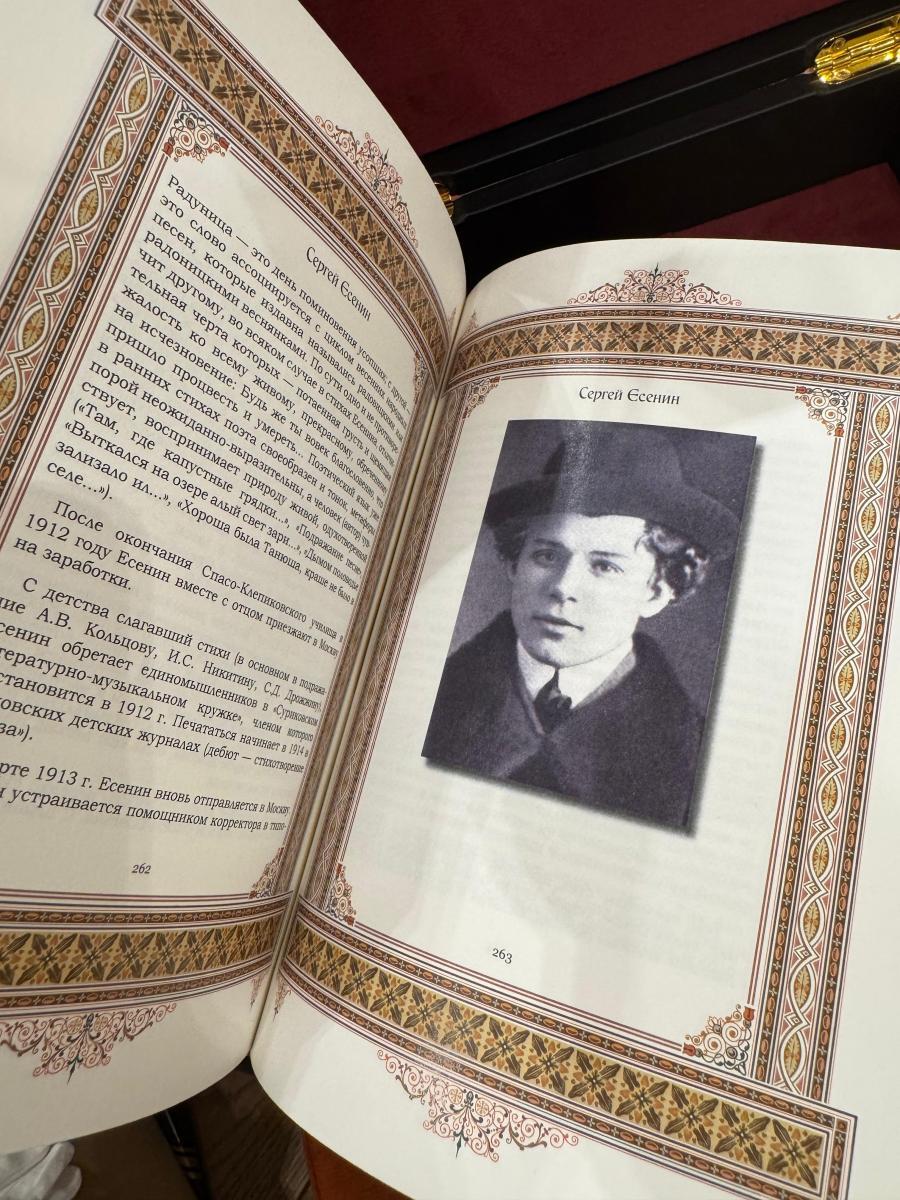 Сергей Єсенин
Радуница — это день поминовения усопших, с другой —
это слово ассоциируется с циклом весенних народных
песен, которые издавна назывались радовицкими или
радоницкими веснянками. По сути одно и не противоре-
чит другому, во всяком случае в стихах Есенина, отличи-
тельная черта которых — потаенная грусть и щемящая
жалость ко всему живому, прекрасному, обреченному
на исчезновение: Будь же ты вовек благословенно, что
пришло процвесть и умереть... Поэтический язык уже
в ранних стихах поэта своеобразен и тонок, метафоры
порой неожиданно-выразительны, а человек (автор) чув-
ствует, воспринимает природу живой, одухотворенной
(«Там, где капустные грядки...», «Подражание песне»,
«Выткался на озере алый свет зари...», «Дымом половодье
зализало ил...», «Хороша была Танюша, краше не было в
селе...»).
После окончания Спасо-Клепиковского училища в
1912 году Есенин вместе с отцом приезжают в Москву
на заработки.
С детства слагавший стихи (в основном в подража-
ние А.В. Кольцову, И.С. Никитину, С.Д. Дрожжину),
сенин обретает единомышленников в «Суриковском
тературно-музыкальном кружке», членом которого
становится в 1912 г. Печататься начинает в 1914 в
ковских детских журналах (дебют — стихотворение
за»).
рте 1913 г. Есенин вновь отправляется в Москву.
н устраивается помощником корректора в типо-
262
Сергей Єсенин
263